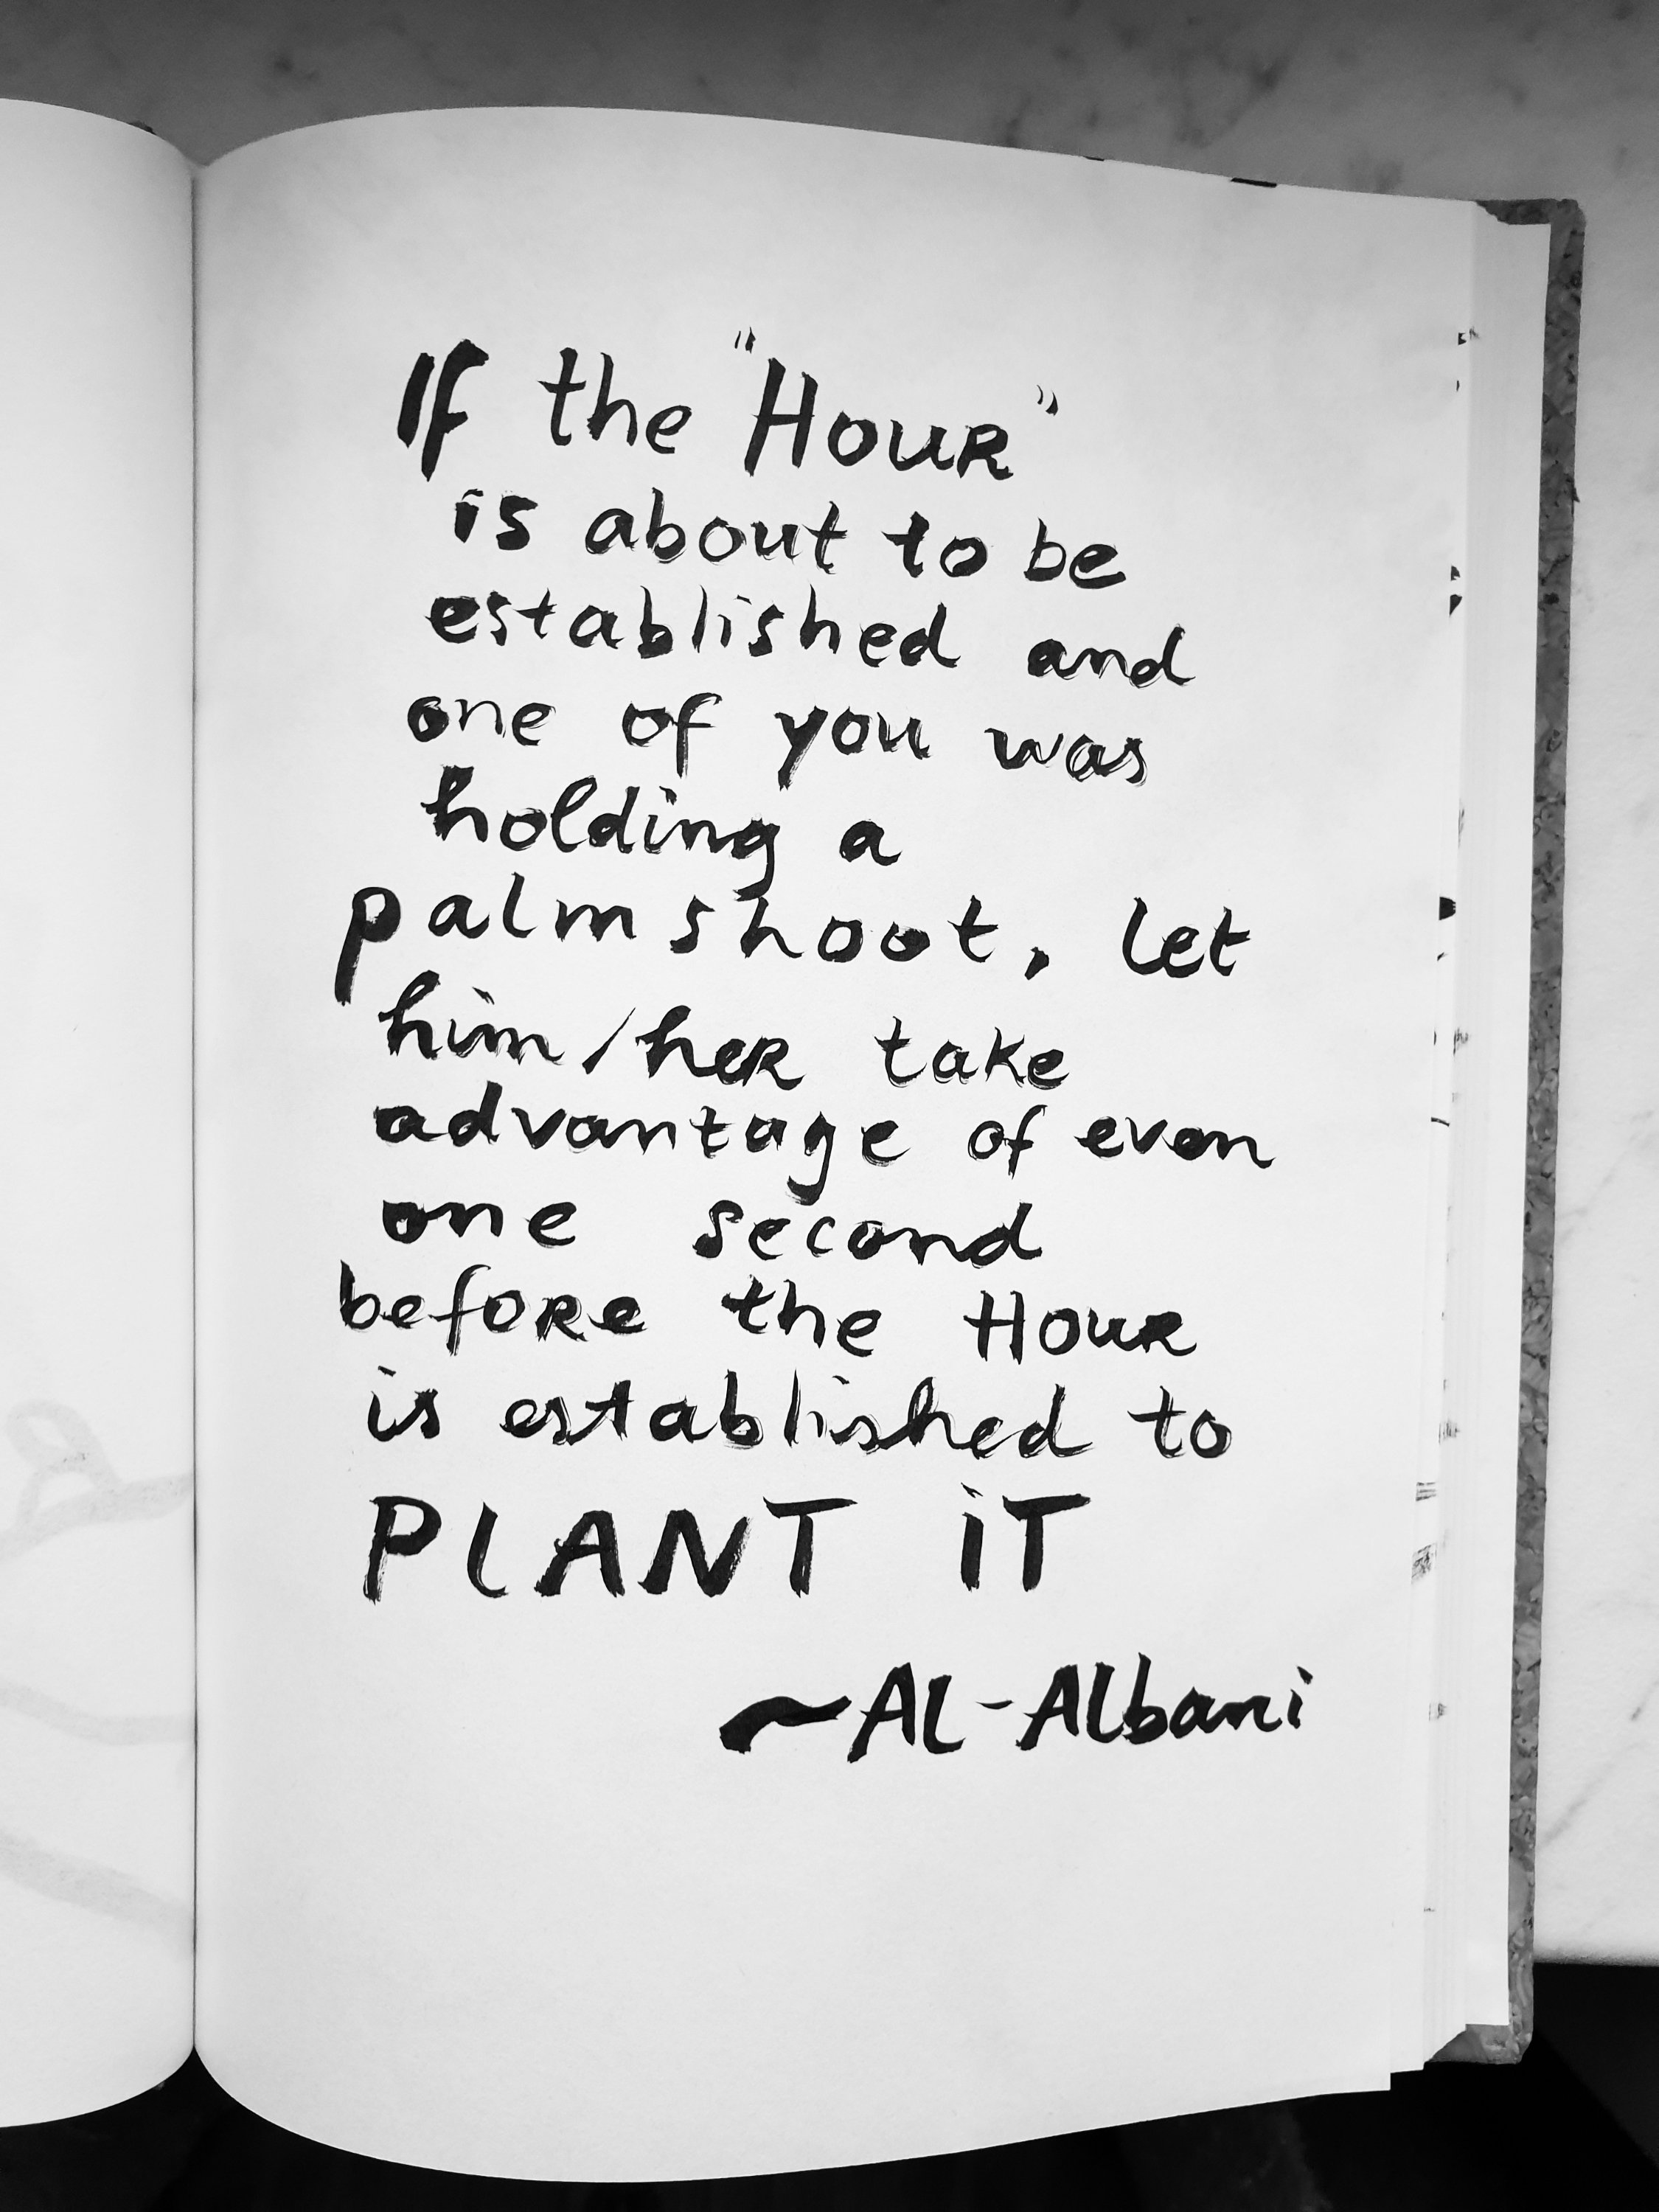 If the "HOUR"
is about to be
established and
one of you was
holding a
palm shoot, let
him/her take
advantage of even
one second
before the Hour
is established to
PLANT iT
~AL-Albani